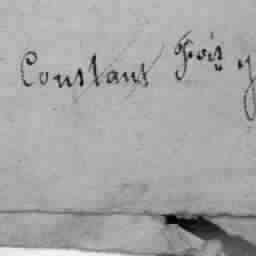 Constant Foix